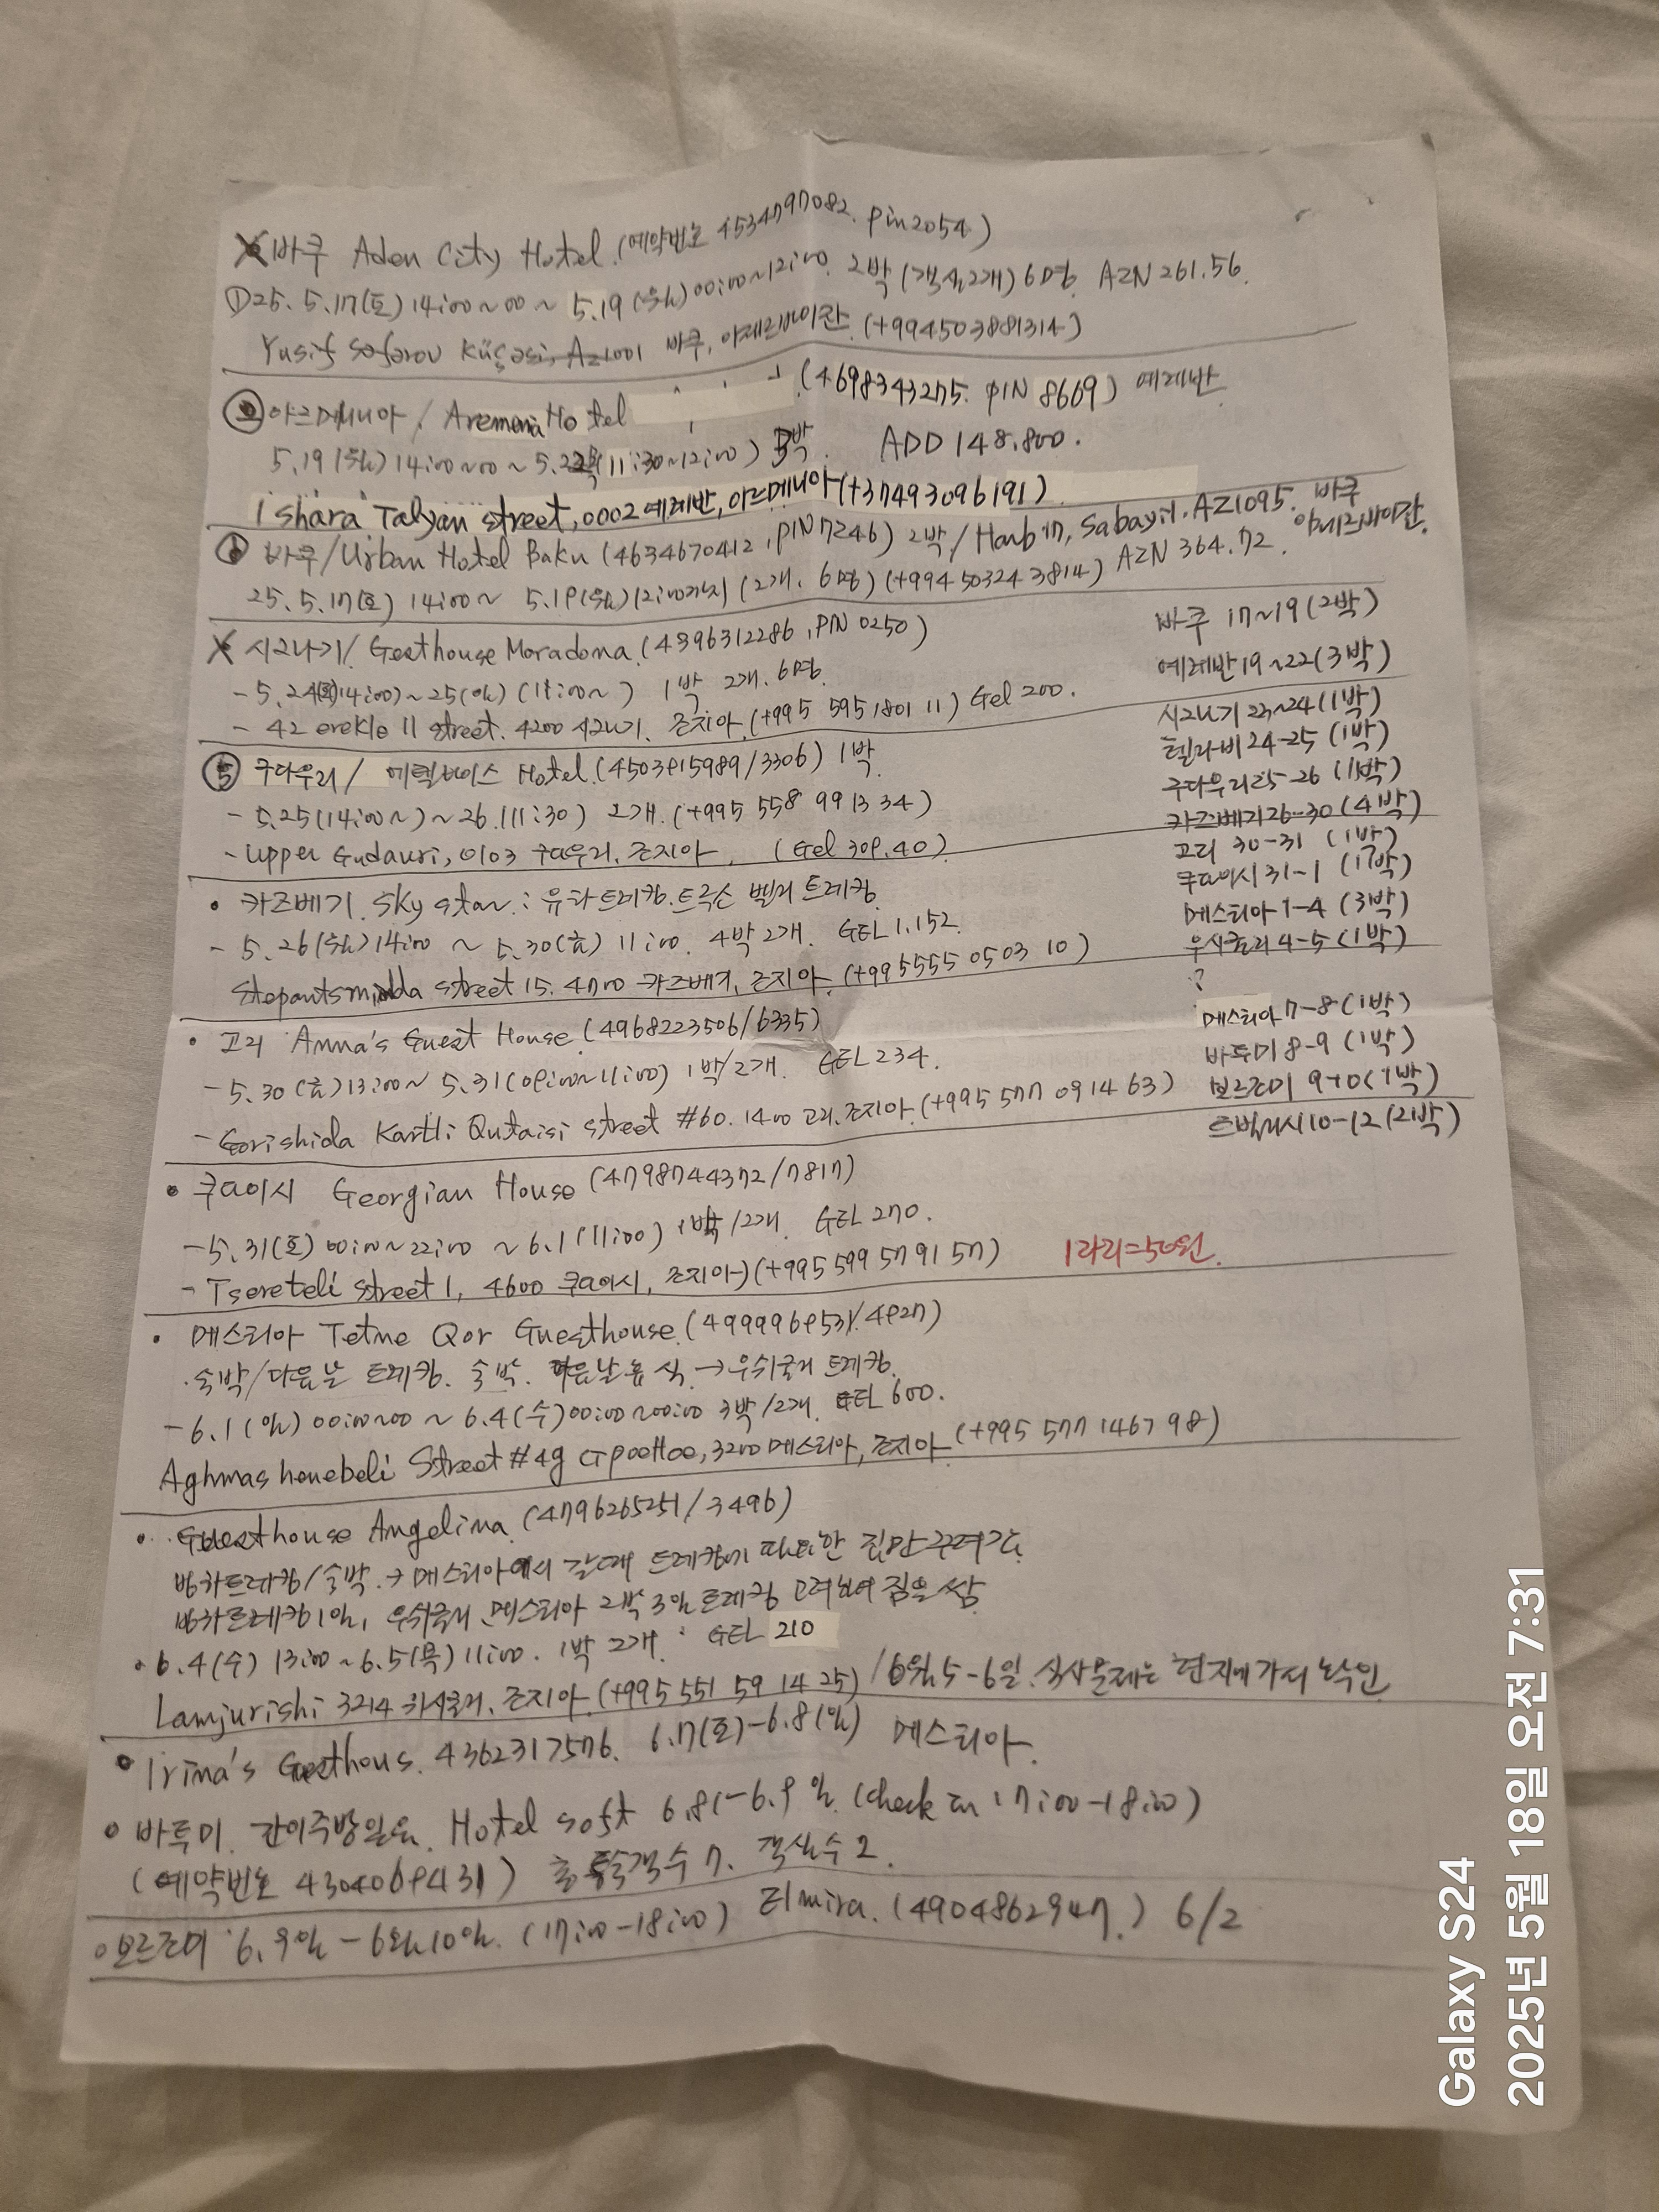 X 바쿠 Aden City Hotel (예약번호 4534797082. pin2054)
① 25. 5.17(토) 14:00~00 ~ 5.19 (월) 00:00~12:00. 2박 (객실2개) 6명. AZN 261.56.
Yusif Səfərov Küçəsi, Az1001 바쿠, 아제르바이잔 (+994503881314)
② 아르메니아 / Hotel (4698343275. PIN 8669) 예레반
5.19 (월) 14:00~00 ~ 5.22 (11:30~12:00) 3박. ADD 148.800.
1 shara Talyan street, 0002 예레반, 아르메니아 (+37493096191)
① 바쿠/Urban Hotel Baku (4634670412, PIN 7246) 2박 / Sabayil. AZ1095. 바쿠 아제르바이잔.
25. 5.17(토) 14:00~ 5.19(월) 12:00까지 (2개. 6명) (+994 50324 3814) AZN 364.72.
X 시그나기/ Gesthouse Maradona (4396312286, PIN 0250)
- 5.24 14:00)~25(일) (11:00~) 1박 2개. 6명.
- 42 erekle 11 street. 4200 시그나기. 조지아. (+995 595 1801 11) Gel 200.
⑤ 구다우리 / Hotel. (4503915989/3306) 1박
- 5.25(14:00~) ~ 26.(11:30) 2개. (+995 558 99 13 34)
- Upper Gudauri, 0103 구다우리. 조지아. (Gel 309.40)
• 카즈베기. Sky star : 트레킹. 트루소 벨리 트레킹.
- 5.26(월) 14:00 ~ 5.30(금) 11:00. 4박 2개. GEL 1.152.
Stepantsminda street 15. 4700 카즈베기, 조지아. (+995555 0503 10)
• 고리 Anna's Guest House. (4968223506/6335)
- 5.30 (금) 13:00~ 5.31(09:00~11:00) 1박/2개. GEL 234.
- Gorishida Kartli Qutaisi street #60. 1400 고리. 조지아. (+995 577 09 14 63)
• 쿠타이시 Georgian House (4798744372/7817)
- 5.31(토) 00:00~22:00 ~ 6.1(11:00) 1박/2개. GEL 270.
- Tsereteli street 1, 4600 쿠타이시, 조지아) (+995 599 57 91 57)
1라리=500원.
• 메스티아 Tetne Qor Guesthouse. (4999969531/4927)
. 숙박/다음날 트레킹. 숙박. 다음날 휴식 → 우쉬굴리 트레킹.
- 6.1 (일) 00:00~00 ~ 6.4(수) 00:00~00:00 3박/2개. GEL 600.
Aghmashenebeli Street #49 3200 메스티아, 조지아. (+995 577 1467 98)
• Guesthouse Angelina. (4796265251/3496)
빙하트레킹/숙박. → 메스티아에서 갈때 트레킹에 필요한 짐만 꾸려감.
빙하트레킹 1일, 우쉬굴리, 메스티아 2박 3일 트레킹 고려하여 짐을 쌈.
• 6.4(수) 13:00 ~ 6.5(목) 11:00. 1박 2개. GEL 210
Lamjurishi 3214 조지아. (+995 551 59 14 25) / 6월 5-6일. 식사문제는 현지에 가서 확인.
• Irina's Gesthous. 4362317576. 6.7(토)-6.8(일) 메스티아.
• 바투미. 간이주방있음. Hotel soft 6.8(-6.9 일. (check in 17:00-18:00)
(예약번호 4304069431) 총 투숙객수 7. 객실수 2.
• 보르조미 6.9일 - 6월 10일. (17:00-18:00) Elmira. (4904862947.) 6/2
바쿠 17~19 (2박)
예레반 19~22 (3박)
시그나기 23~24 (1박)
텔라비 24-25 (1박)
구다우리 25-26 (1박)
카즈베기 26-30 (4박)
고리 30-31 (1박)
쿠타이시 31~1 (1박)
메스티아 1-4 (3박)
우쉬굴리 4-5 (1박)
?
메스티아 7-8 (1박)
바투미 8-9 (1박)
보르조미 9-10 (1박)
트빌리시 10-12 (2박)
Galaxy S24
2025년 5월 18일 오전 7:31